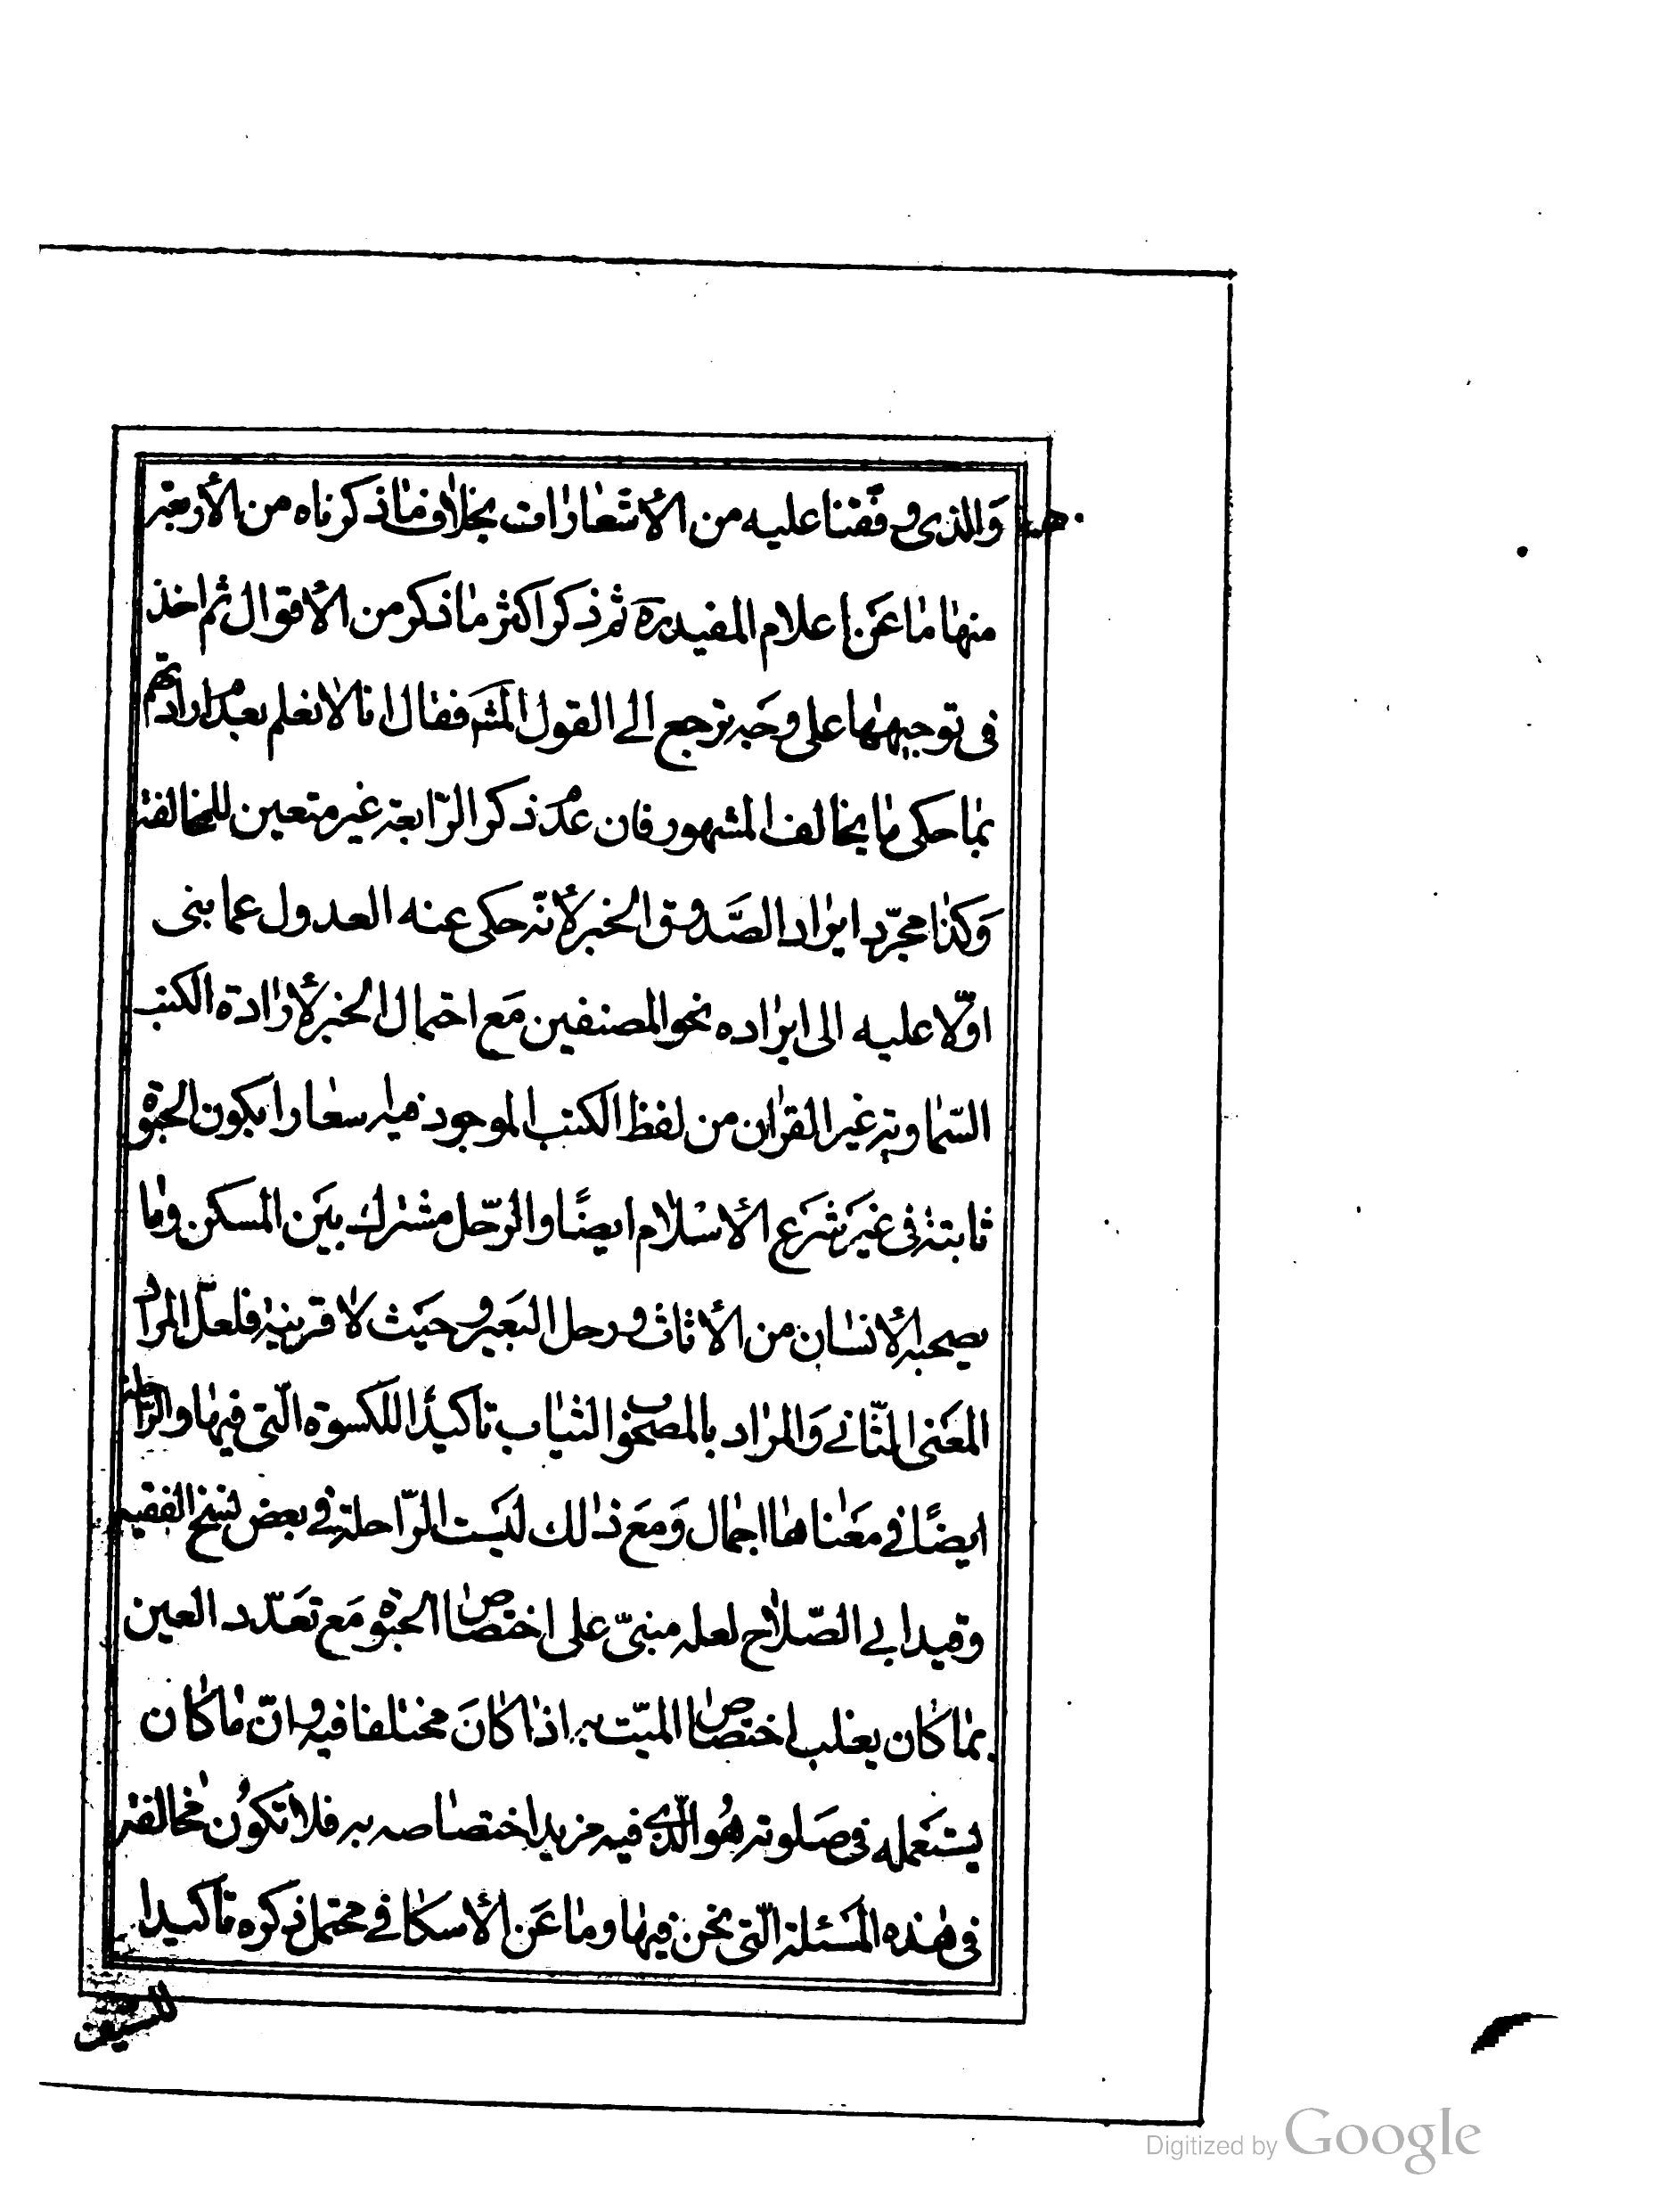 وَالذى وقّفنا عليه من الأشعارات بخلاف ما ذكرناه من الأربعة
منها ما عَن اعلام المفيد ره ثم ذكر اكثر ما ذكر من الأقوال ثم اخذ
فى توجيهها على وجَه ترجع الے القول المشَر فقال انا لا نعلم بعدُ ارادتهم
بما حكى ما يخالف المشهور فان عدَمُ ذكر الرّابعة غير متعين للمخالفة
وَكذا مجرّد ايراد الصَّدوق الخبر لأنّه حكى عنه العدول عما بنى
اوّلا عليه الى ايراده نحو المصنفين مَع احتمال الخبر لأرادة الكتب
السّماوية غير القران من لفظ الكتب الموجود فيه سعارا بكون الحبوة
ثابتة فى غيَر شَرَع الأسْلام ايضًا والرّحل مشترك بيَن المسكن وما
يصحبه الأنسان من الأثاث ورحل البَعير وحيَث لا قرينة فلعلّ المراد
المعَنى الثّانے وَالمراد بالمصحف الثياب تاكيدًا للكسوة الّتى فيها والرّاحلة
ايضًا فے معَناها اجمال وَمعَ ذالك ليَست الرّاحلة فے بعض نسخ الفقيه
وقيد ابے الصّلاح لعله مبنىّ على اختصاص الحبوة مَع تعَدّد العين
بما كان يغلب اختصاص الميّت به اذا كانَ مختلفا فيه وانّ ما كان
يستَعمله فى صَلوته هُو الّذى فيه مزيد اختصاصه به فلا تكوُن مخالفة
فى هذه المسَئلة الّتى نحن فيها وما عَن الأسكافے محتمل ذكره تاكيدا
للسيف
Digitized by Google